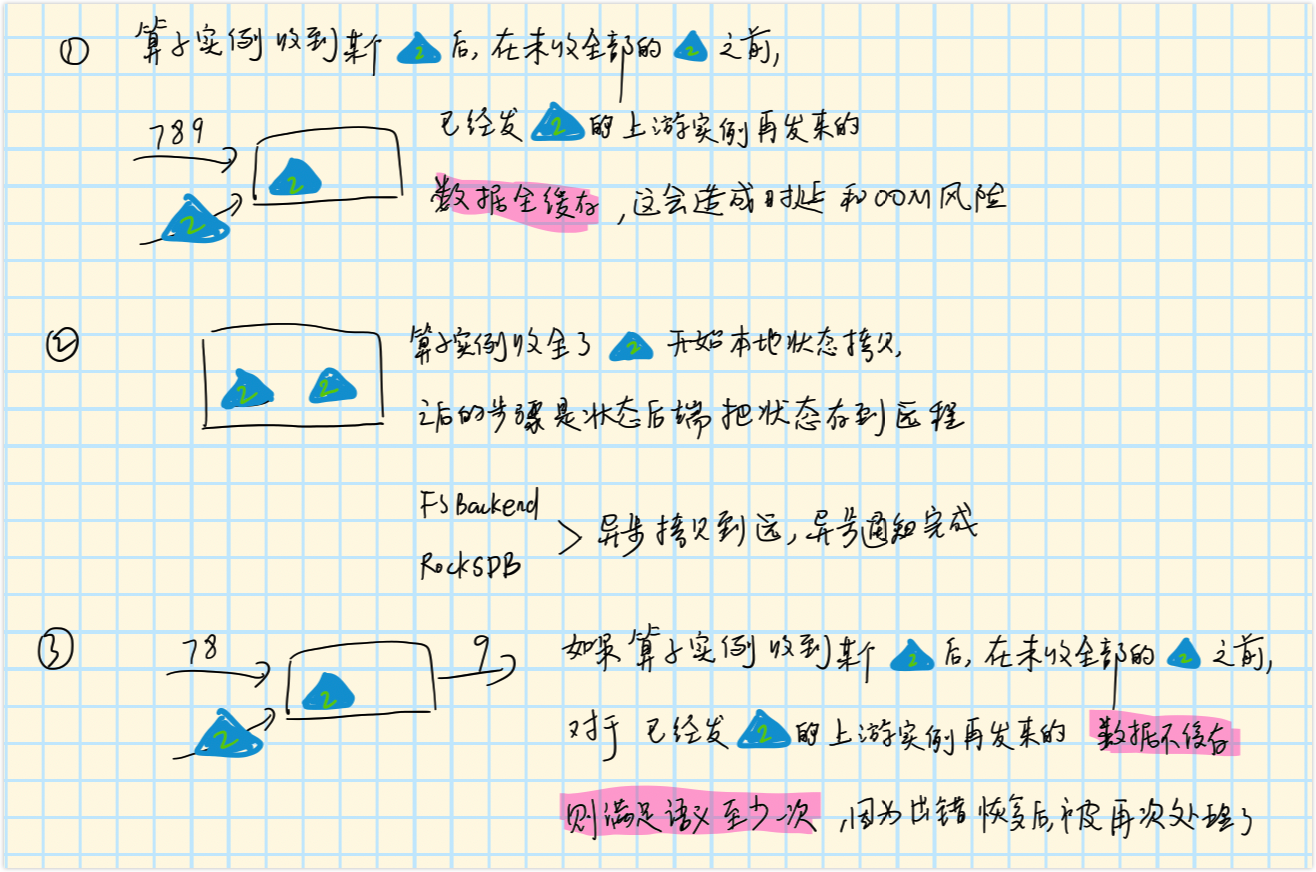 ① 算子实例收到某个 2 后,在未收全部的 2 之前,
已经发 2 的上游实例再发来的
789
2
数据全缓存,这会造成时延和OOM风险
2
② 算子实例收全了 2 开始本地状态拷贝,
2 2
之后的步骤是状态后端把状态存到远程
FSBackend
> 异步拷贝到远,异步通知完成
RocksDB
③ 78 9 如果算子实例收到某个 2 后,在未收全部的 2 之前,
2
2 对于已经发 2 的上游实例再发来的 数据不缓存
则满足语义至少一次,因为出错恢复后,被再次处理了